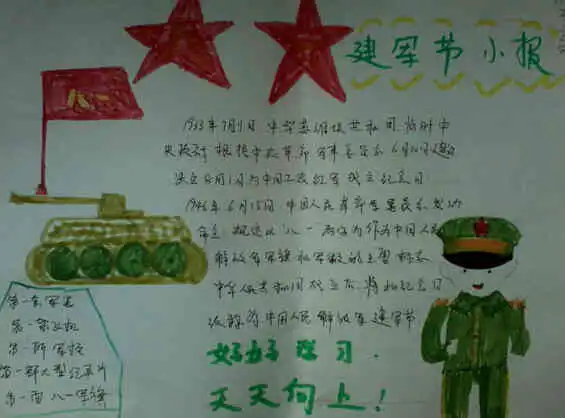 建军节小报
八一
1933年7月11日,中华苏维埃共和国临时中
央政府根据中央革命军事委员会6月30日建议
决定8月1日为中国工农红军成立纪念日
1949年6月15日,中国人民革命军事委员会发布
命令,规定以"八一"两字作为中国人民
解放军军旗和军徽的主要标志
中华人民共和国成立后,将此纪念日
改称为中国人民解放军建军节
第一套军装
第一
第一所军校
第一部大型纪录片
第一面八一军旗
好好学习.
天天向上!